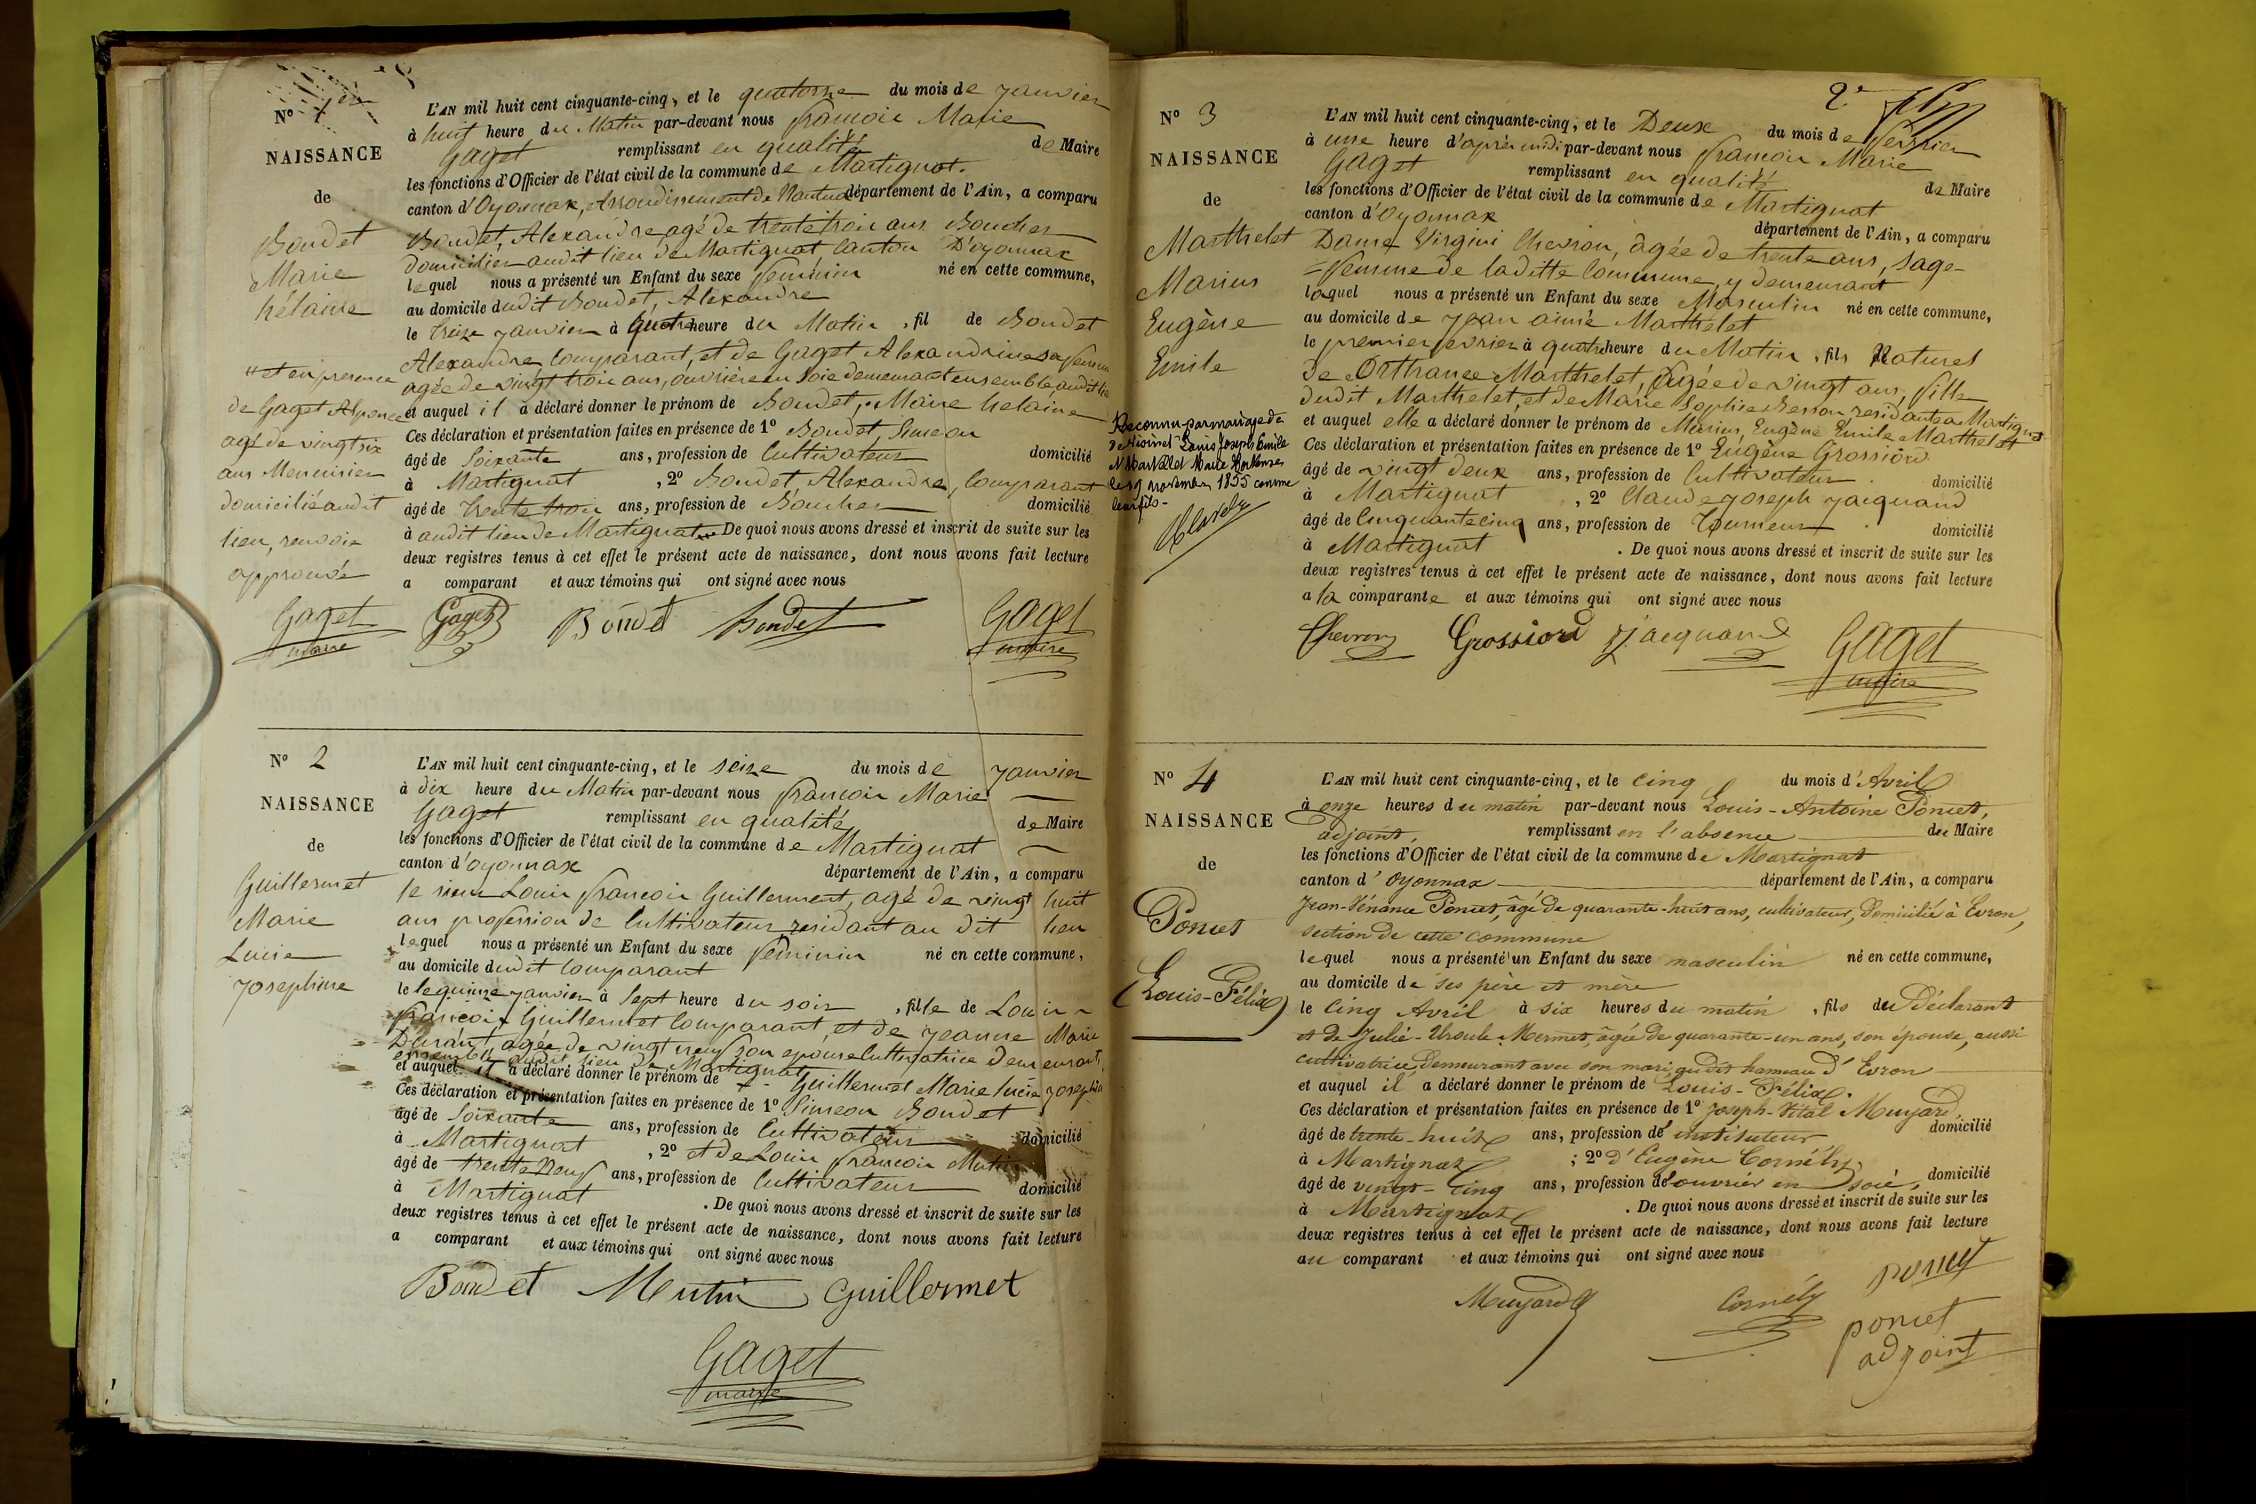 No 1er
NAISSANCE
de
Boudet
Marie
hélaine
"et en présence
de Gaget Alponce
agé de vingt six
ans Menuisier
domicilié audit
lieu, renvoie
approuvé
Gaget
maire
L'AN mil huit cent cinquante-cinq, et le quatorze du mois de janvier
à huit heure du Matin par-devant nous françois Marie
Gaget remplissant en qualité de Maire
les fonctions d'Officier de l'état civil de la commune de Martignat.
canton d'Oyonnax, Arrondissement de Nantua département de l'Ain, a comparu
Boudet, Alexandre agé de trente trois ans Boucher
domicilier audit lieu de Martignat Canton D'oyonnax
lequel nous a présenté un Enfant du sexe feminin né en cette commune,
au domicile dudit Boudet, Alexandre
le treize janvier à quatre heure du Matin, fil de Boudet
Alexandre, Comparant, et de Gaget Alexandrine sa femme
agée de vingt trois ans, ouvrière en Soie demeurant ensemble audit lieu
et auquel il a déclaré donner le prénom de Boudet, Marie helaine
Ces déclaration et présentation faites en présence de 1º Boudet, Simeon
âgé de Soixante ans, profession de Cultivateur domicilié
à Martignat, 2º Boudet, Alexandre, Comparant
âgé de trente trois ans, profession de Boucher domicilié
à audit lieu de Martignat De quoi nous avons dressé et inscrit de suite sur les
deux registres tenus à cet effet le présent acte de naissance, dont nous avons fait lecture
a comparant et aux témoins qui ont signé avec nous
Gaget Boudet Boudet Gaget
maire
No 2
NAISSANCE
de
Guillermet
Marie
Lucie
josephine
L'AN mil huit cent cinquante-cinq, et le seize du mois de janvier
à dix heure du Matin par-devant nous françois Marie
Gaget remplissant en qualité de Maire
les fonctions d'Officier de l'état civil de la commune de Martignat
canton d'oyonnax département de l'Ain, a comparu
le sieur Louis françois Guillermet, agé de vingt huit
ans profession de Cultivateur residant au dit lieu
lequel nous a présenté un Enfant du sexe féminin né en cette commune,
au domicile dudit Comparant
le le quinze janvier à Sept heure du soir, fille de Louis
françois Guillermet Comparant, et de jeanne Marie
Durant, agée de vingt neuf son epouse Cultivatrice demeurant
ensemble audit lieu de Martignat
et auquel il a déclaré donner le prénom de Guillermet Marie lucie josephine
Ces déclaration et présentation faites en présence de 1º Simeon Boudet
âgé de Soixante ans, profession de Cultivateur domicilié
à Martignat, 2º et de Louis françois Mutin
âgé de trente Neuf ans, profession de Cultivateur domicilié
à Martignat. De quoi nous avons dressé et inscrit de suite sur les
deux registres tenus à cet effet le présent acte de naissance, dont nous avons fait lecture
a comparant et aux témoins qui ont signé avec nous
Boudet Mutin Guillermet
Gaget
maire
2e
No 3
NAISSANCE
de
Marthelet
Marius
Eugène
Emile
Reconnu par mariage de
Louis Joseph Emile
Marthelet Marie Hortense
le 9 novembre 1855 comme
leur fils -
L'AN mil huit cent cinquante-cinq, et le Deux du mois de février
à une heure d'après midi par-devant nous françois Marie
Gaget remplissant en qualité de Maire
les fonctions d'Officier de l'état civil de la commune de Martignat
canton d'oyonnax département de l'Ain, a comparu
Dame Virgini Chevron, âgée de trente ans, sage-
=femme de laditte Commune, y demeurant
laquel nous a présenté un Enfant du sexe Masculin né en cette commune,
au domicile de jean aimé Marthelet
le premier fevrier à quatre heure du Matin, fils Naturel
de Orthance Marthelet, agée de vingt ans, fille
dudit Marthelet, et de Marie Sophie Besson residante a Martignat
et auquel elle a déclaré donner le prénom de Marius Eugène Emile Marthelet
Ces déclaration et présentation faites en présence de 1º Eugène Grossiord
âgé de vingt deux ans, profession de Cultivateur domicilié
à Martignat, 2º Claude joseph jacquand
âgé de Cinquante cinq ans, profession de Tourneur domicilié
à Martignat. De quoi nous avons dressé et inscrit de suite sur les
deux registres tenus à cet effet le présent acte de naissance, dont nous avons fait lecture
a la comparante et aux témoins qui ont signé avec nous
Chevron Grossiord jacquand Gaget
maire
No 4
NAISSANCE
de
Poncet
(Louis-Félix)
L'AN mil huit cent cinquante-cinq, et le cinq du mois d'Avril
à onze heures du matin par-devant nous Louis-Antoine Poncet,
adjoint, remplissant en l'absence du Maire
les fonctions d'Officier de l'état civil de la commune de Martignat
canton d'Oyonnax département de l'Ain, a comparu
Jean-Vénance Poncet, âgé de quarante-huit ans, cultivateur, domicilié à Evron,
section de cette commune
lequel nous a présenté un Enfant du sexe masculin né en cette commune,
au domicile de ses père et mère
le cinq Avril à six heures du matin, fils du Déclarant
et de Julie-Ursule Mermet, âgée de quarante-un ans, son épouse, aussi
cultivatrice, demeurant avec son mari audit hameau d'Evron
et auquel il a déclaré donner le prénom de Louis-Félix.
Ces déclaration et présentation faites en présence de 1º Joseph-Vital Muyard,
âgé de trente-huit ans, profession d'instituteur domicilié
à Martignat; 2º d'Eugène Cornély,
âgé de vingt-cinq ans, profession d'ouvrier en soie, domicilié
à Martignat. De quoi nous avons dressé et inscrit de suite sur les
deux registres tenus à cet effet le présent acte de naissance, dont nous avons fait lecture
au comparant et aux témoins qui ont signé avec nous
Muyard Cornély poncet
poncet
adjoint